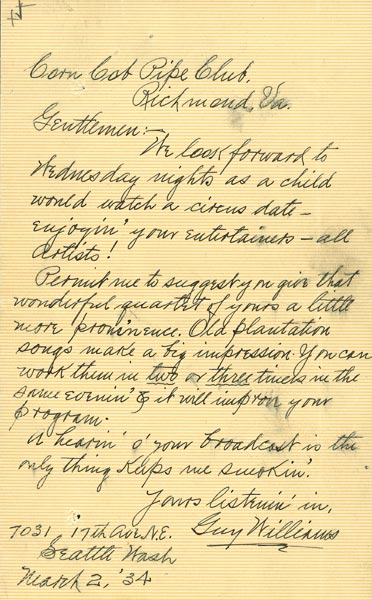 Corn Cob Pipe Club.
Richmond, Va.
Gentlemen:-
We look forward to
Wednesday nights as a child
would watch a circus date -
enjoyin' your entertainers - all
artists!
Permit me to suggest you give that
wonderful quartet of yours a little
more prominence. Old plantation
songs make a big impression. You can
work them in two or three times in the
same evenin' & it will improve your
program.
A hearin' o' your broadcast is the
only thing keeps me smokin'.
Yours listenin' in,
7031 17th Ave. N.E. Guy Williams
Seattle Wash
March 2, '34